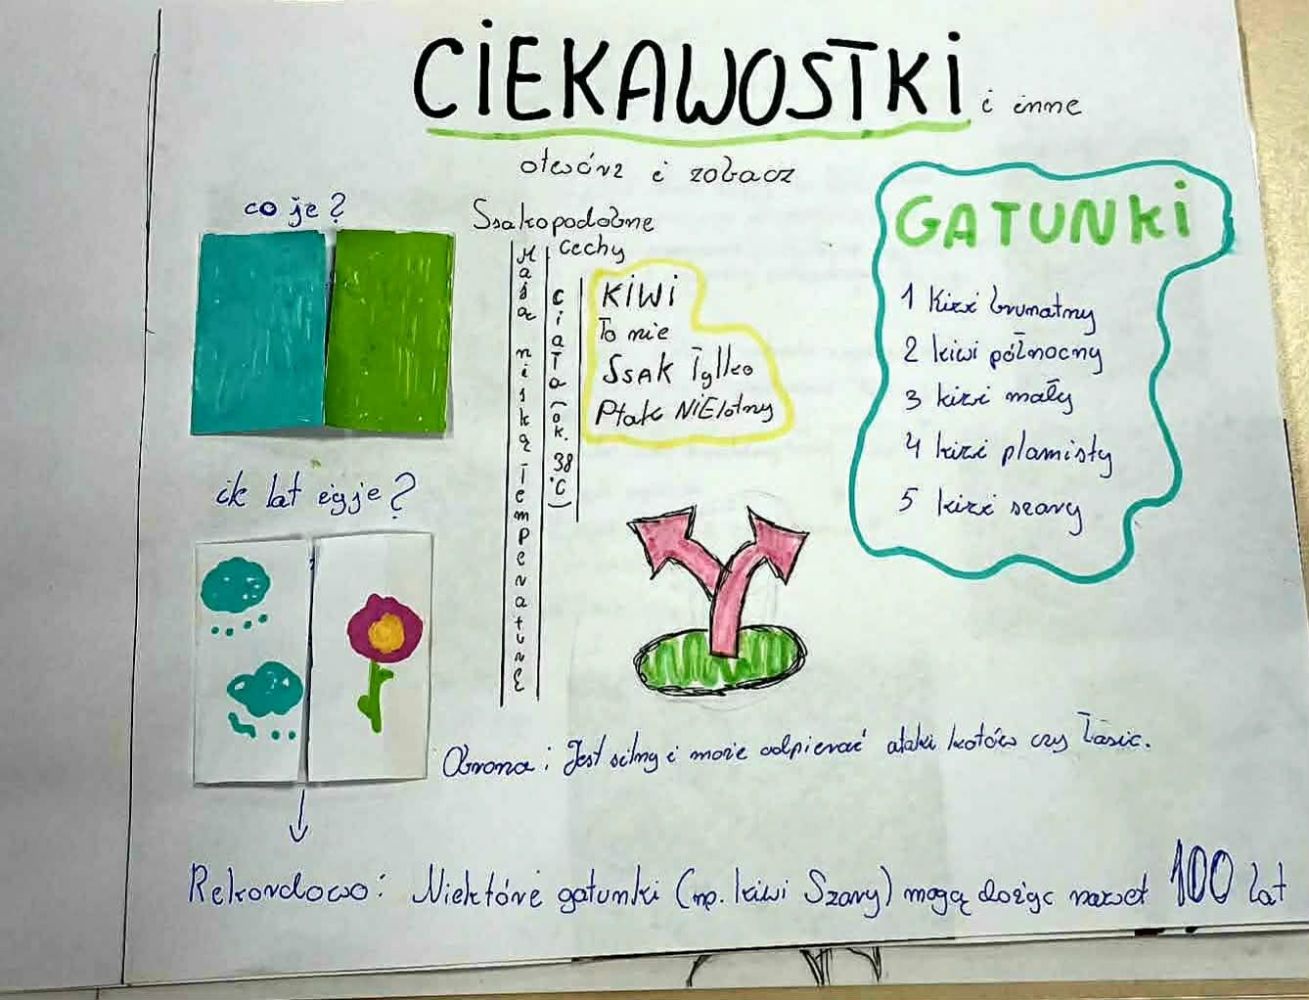 CIEKAWOSTKI i inne
otwórz i zobacz
co je?
Ssakopodobne
cechy
Mają niską temperaturę
ciała (ok. 38 °C)
KIWI
To nie
SSAK Tylko
Ptak NiElotny
GATUNKi
1 Kiwi brunatny
2 kiwi północny
3 kiwi mały
4 kiwi plamisty
5 kiwi szary
ik lat eigje?
Obrona: Jest silny i może odpierać ataki kotów czy łasic.
Rekordowo: Niektóre gatunki (np. kiwi Szary) mogą dożyc nawet 100 lat